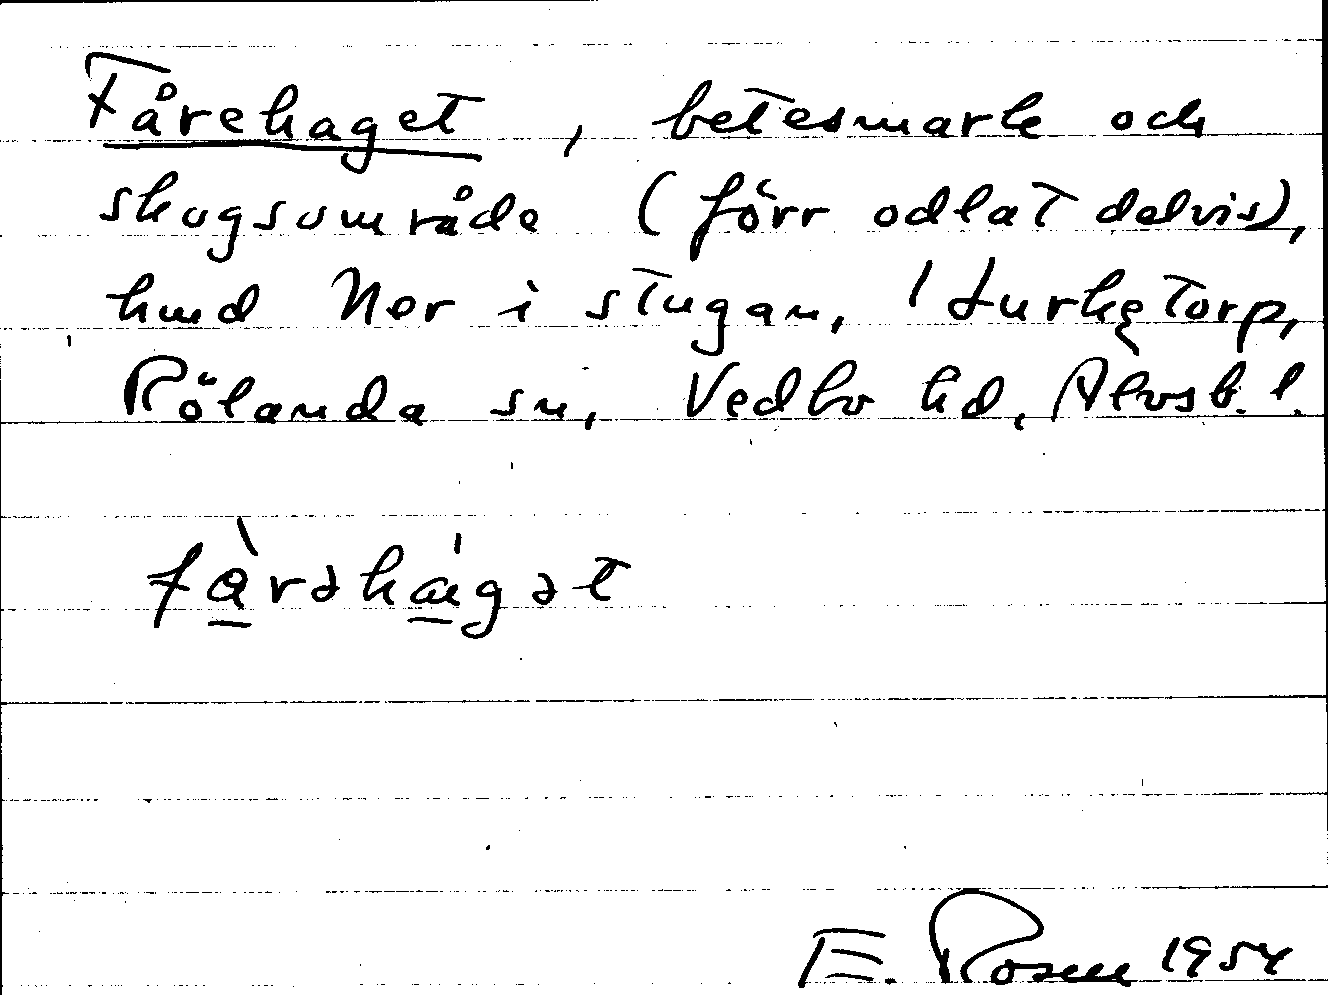 Fårehaget, betesmark och
skogsområde (förr odlat delvis),
hmd Nor i stugan, Hurketorp,
Rölanda sn, Vedbo hd, Älvsb. l.
fàrəhágət
E. Rosen 1954